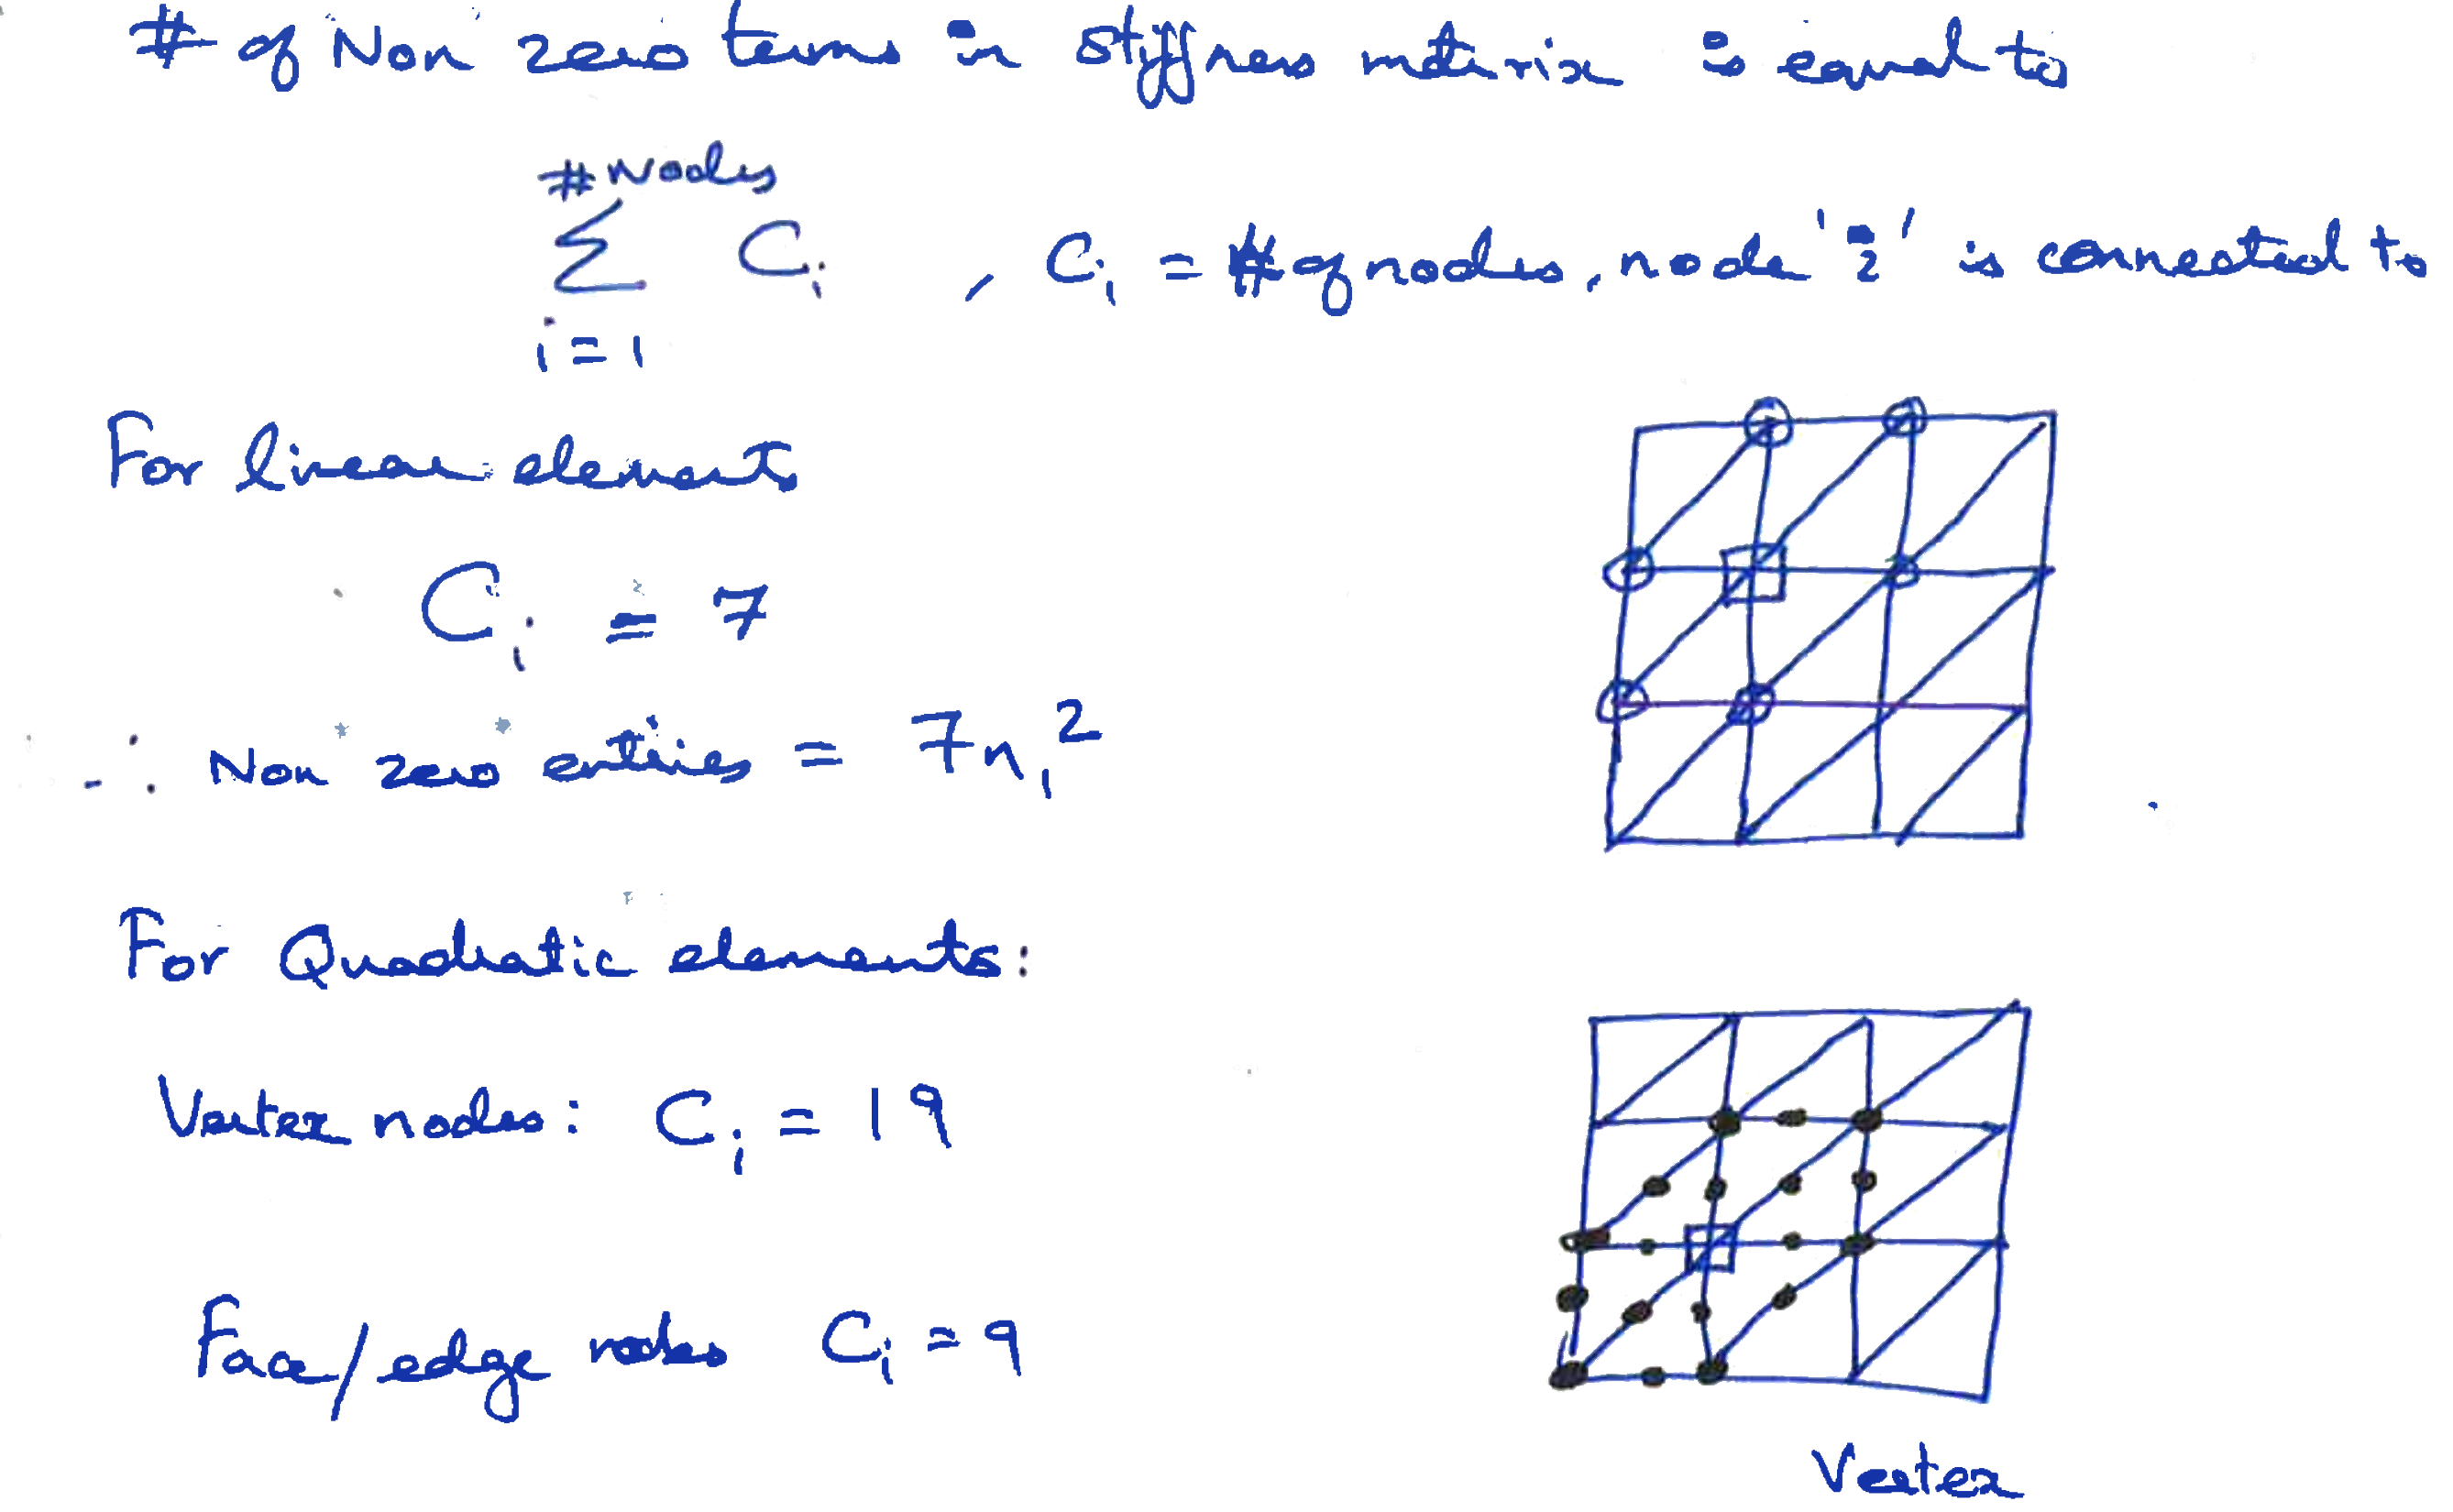 # of Non zero terms in stiffness matrix is equal to
#Nodes
Σ Cᵢ , Cᵢ = # of nodes, node 'i' is connected to
i = 1
For linear elements
Cᵢ = 7
∴ Non zero entries = 7n₁²
For Quadratic elements:
Vertex nodes: Cᵢ = 19
Face/edge nodes Cᵢ = 9
Vertex